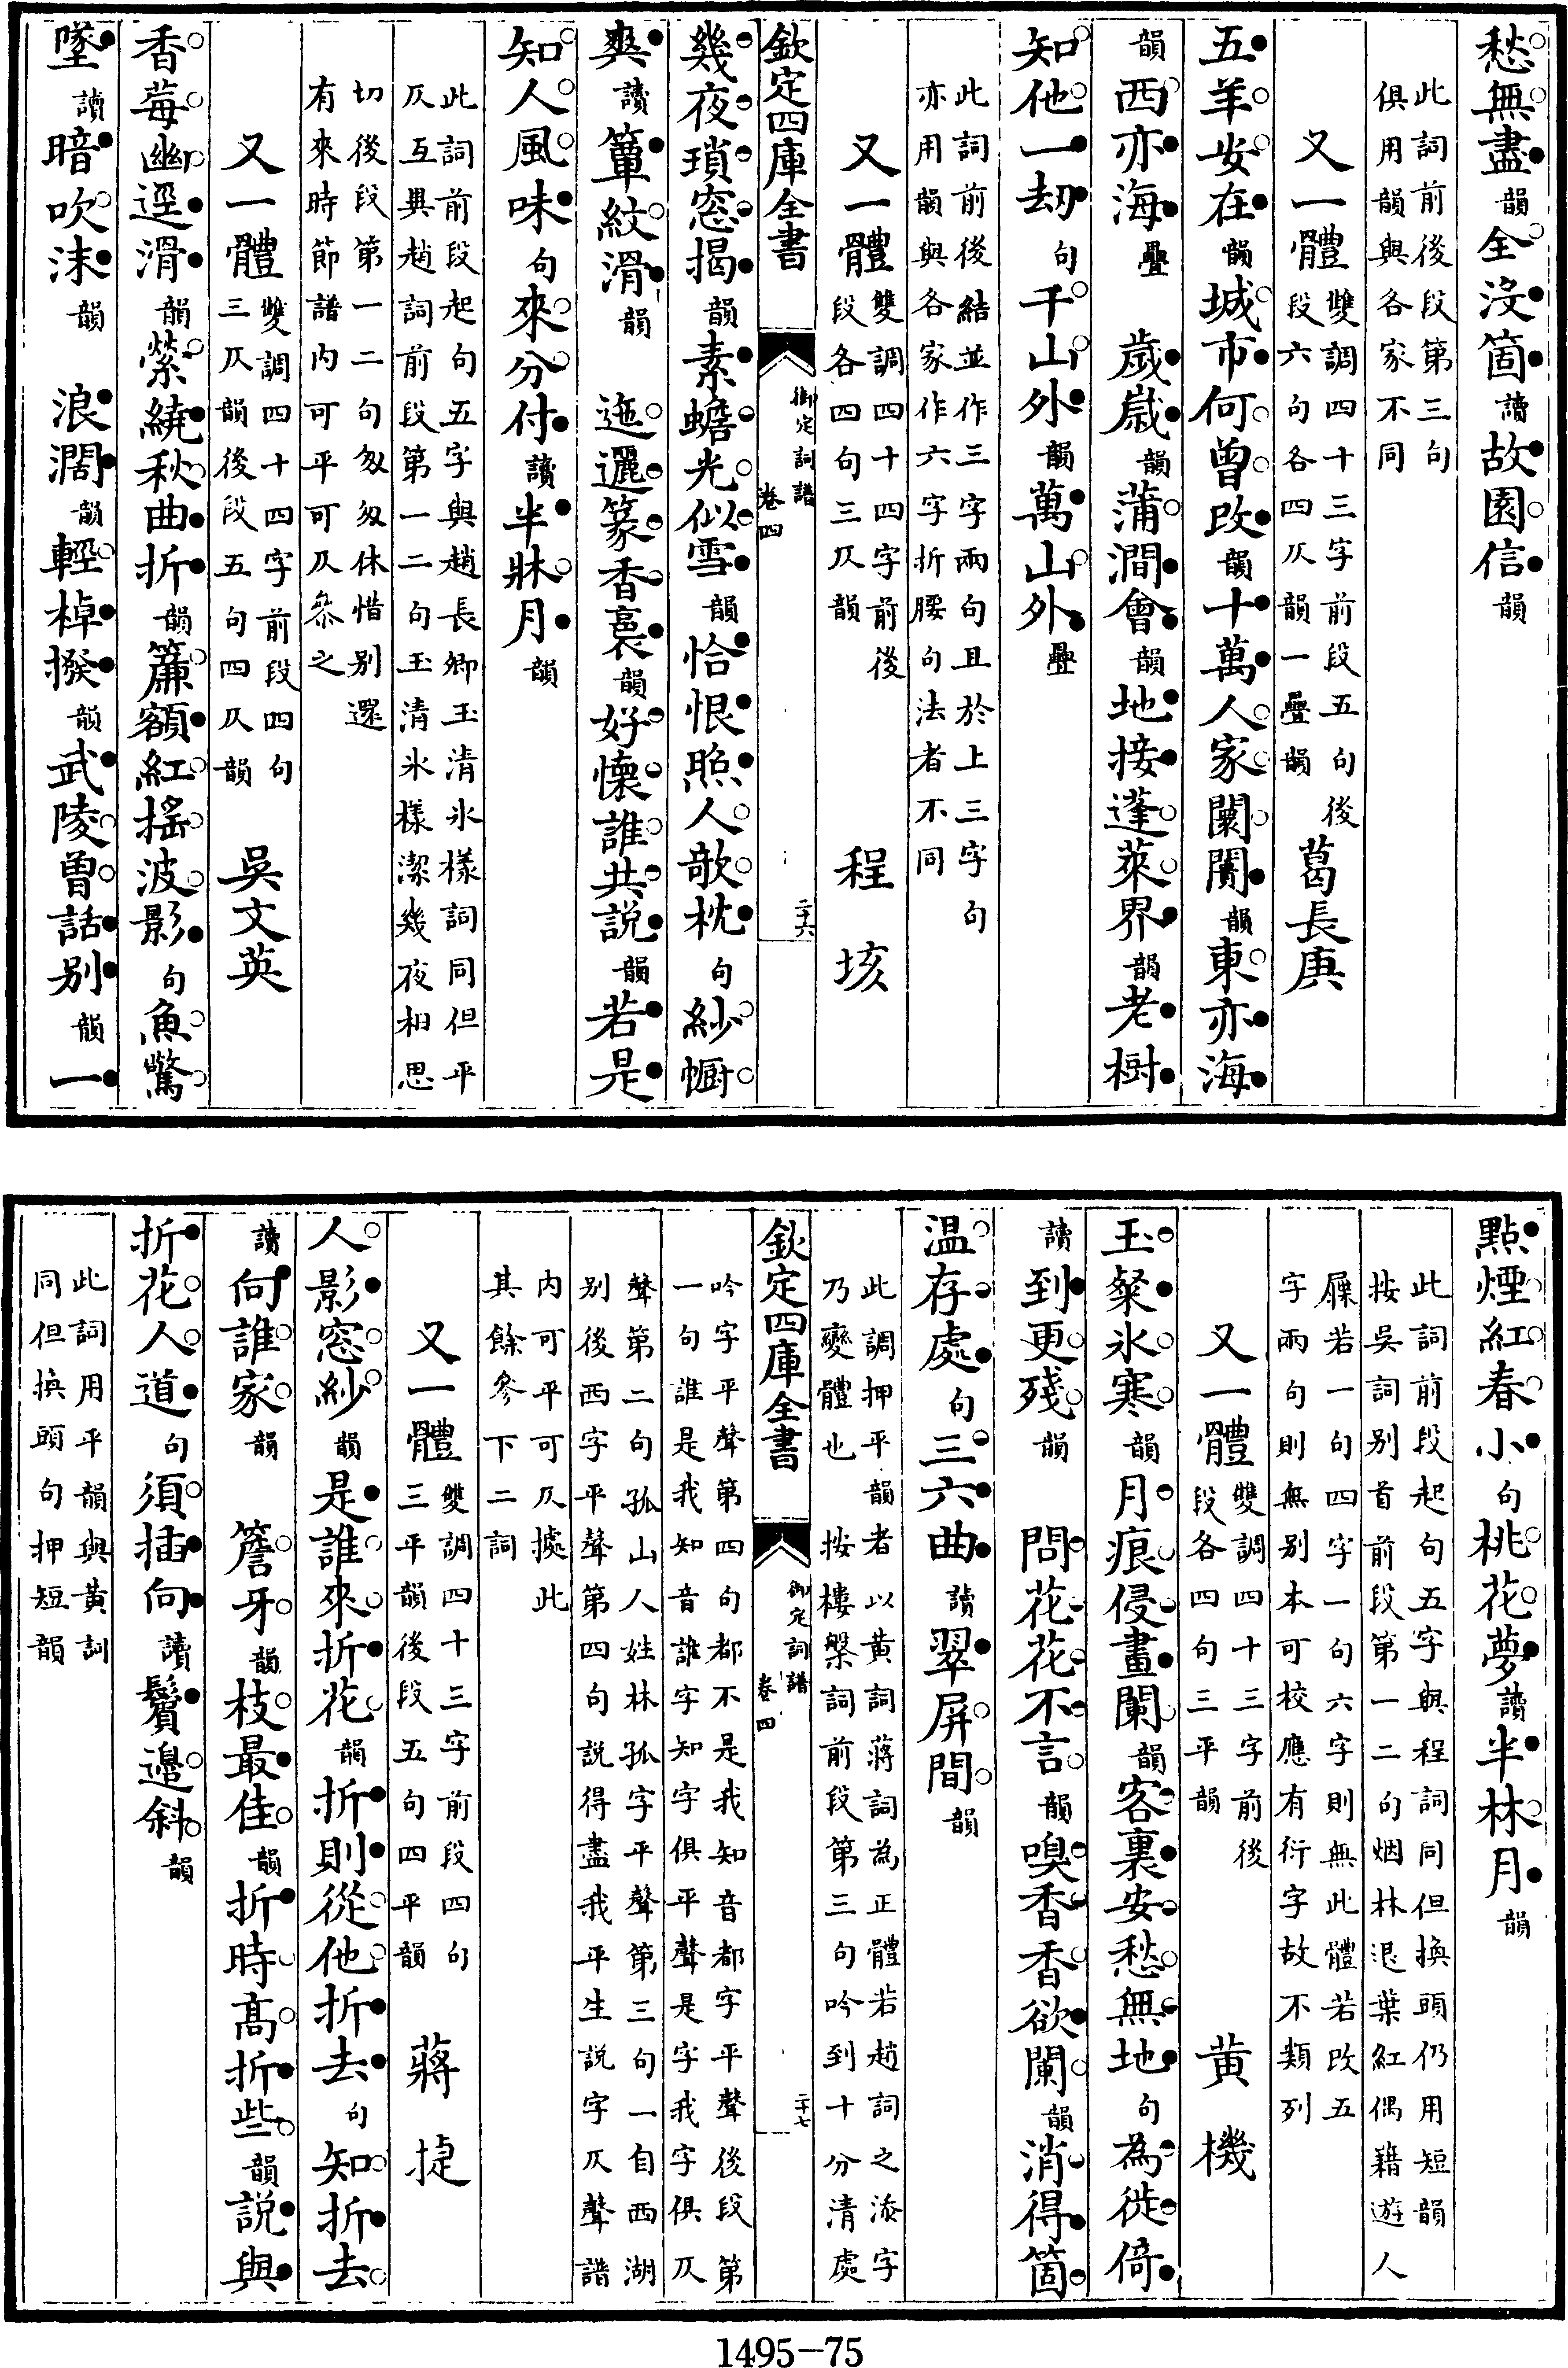 愁無盡韻全沒箇讀故園信韻
此詞前後段第三句
俱用韻與各家不同
又一體雙調四十三字前段五句後
段六句各四仄韻一疊韻葛長庚
五羊安在韻城市何曾改韻十萬人家闤闠韻東亦海
韻西亦海疊　歲歲韻蒲澗會韻地接蓬萊界韻老樹
知他一劫句千山外韻萬山外疊
此詞前後結並作三字兩句且於上三字句
亦用韻與各家作六字折腰句法者不同
又一體雙調四十四字前後
段各四句三仄韻程垓
欽定四庫全書　御定詞譜卷四　二十六
幾夜瑣窓揭韻素蟾光似雪韻恰恨照人欹枕句紗幮
爽讀簟紋滑韻　迤邐篆香裛韻好懷誰共説韻若是
知人風味句來分付讀半牀月韻
此詞前段起句五字與趙長卿玉清氷樣詞同但平
仄互異趙詞前段第一二句玉清氷樣潔幾夜相思
切後段第一二句匆匆休惜别還
有來時節譜内可平可仄叅之
又一體雙調四十四字前段四句
三仄韻後段五句四仄韻吳文英
香莓幽逕滑韻縈繞秋曲折韻簾額紅搖波影句魚驚
墜讀暗吹沫韻　浪濶韻輕棹撥韻武陵曾話别韻一
點煙紅春小句桃花夢讀半林月韻
此詞前段起句五字與程詞同但換頭仍用短韻
按吳詞别首前段第一二句烟林退葉紅偶藉遊人
屧若一句四字一句六字則無此體若改五
字兩句則無别本可校應有衍字故不類列
又一體雙調四十三字前後
段各四句三平韻黄機
玉粲氷寒韻月痕侵畫闌韻客裏安愁無地句為徙倚
讀到更殘韻　問花花不言韻嗅香香欲闌韻消得箇
温存處句三六曲讀翠屏間韻
此調押平韻者以黄詞蔣詞為正體若趙詞之添字
乃變體也　按樓槃詞前段第三句吟到十分清處
欽定四庫全書　御定詞譜卷四　二十七
吟字平聲第四句都不是我知音都字平聲後段第
一句誰是我知音誰字知字俱平聲是字我字俱仄
聲第二句孤山人姓林孤字平聲第三句一自西湖
别後西字平聲第四句説得盡我平生説字仄聲譜
内可平可仄據此
其餘參下二詞
又一體雙調四十三字前段四句
三平韻後段五句四平韻蔣捷
人影窓紗韻是誰來折花韻折則從他折去句知折去
讀向誰家韻　簷牙韻枝最佳韻折時高折些韻説與
折花人道句須插向讀鬢邊斜韻
此詞用平韻與黄詞
同但換頭句押短韻
1495-75